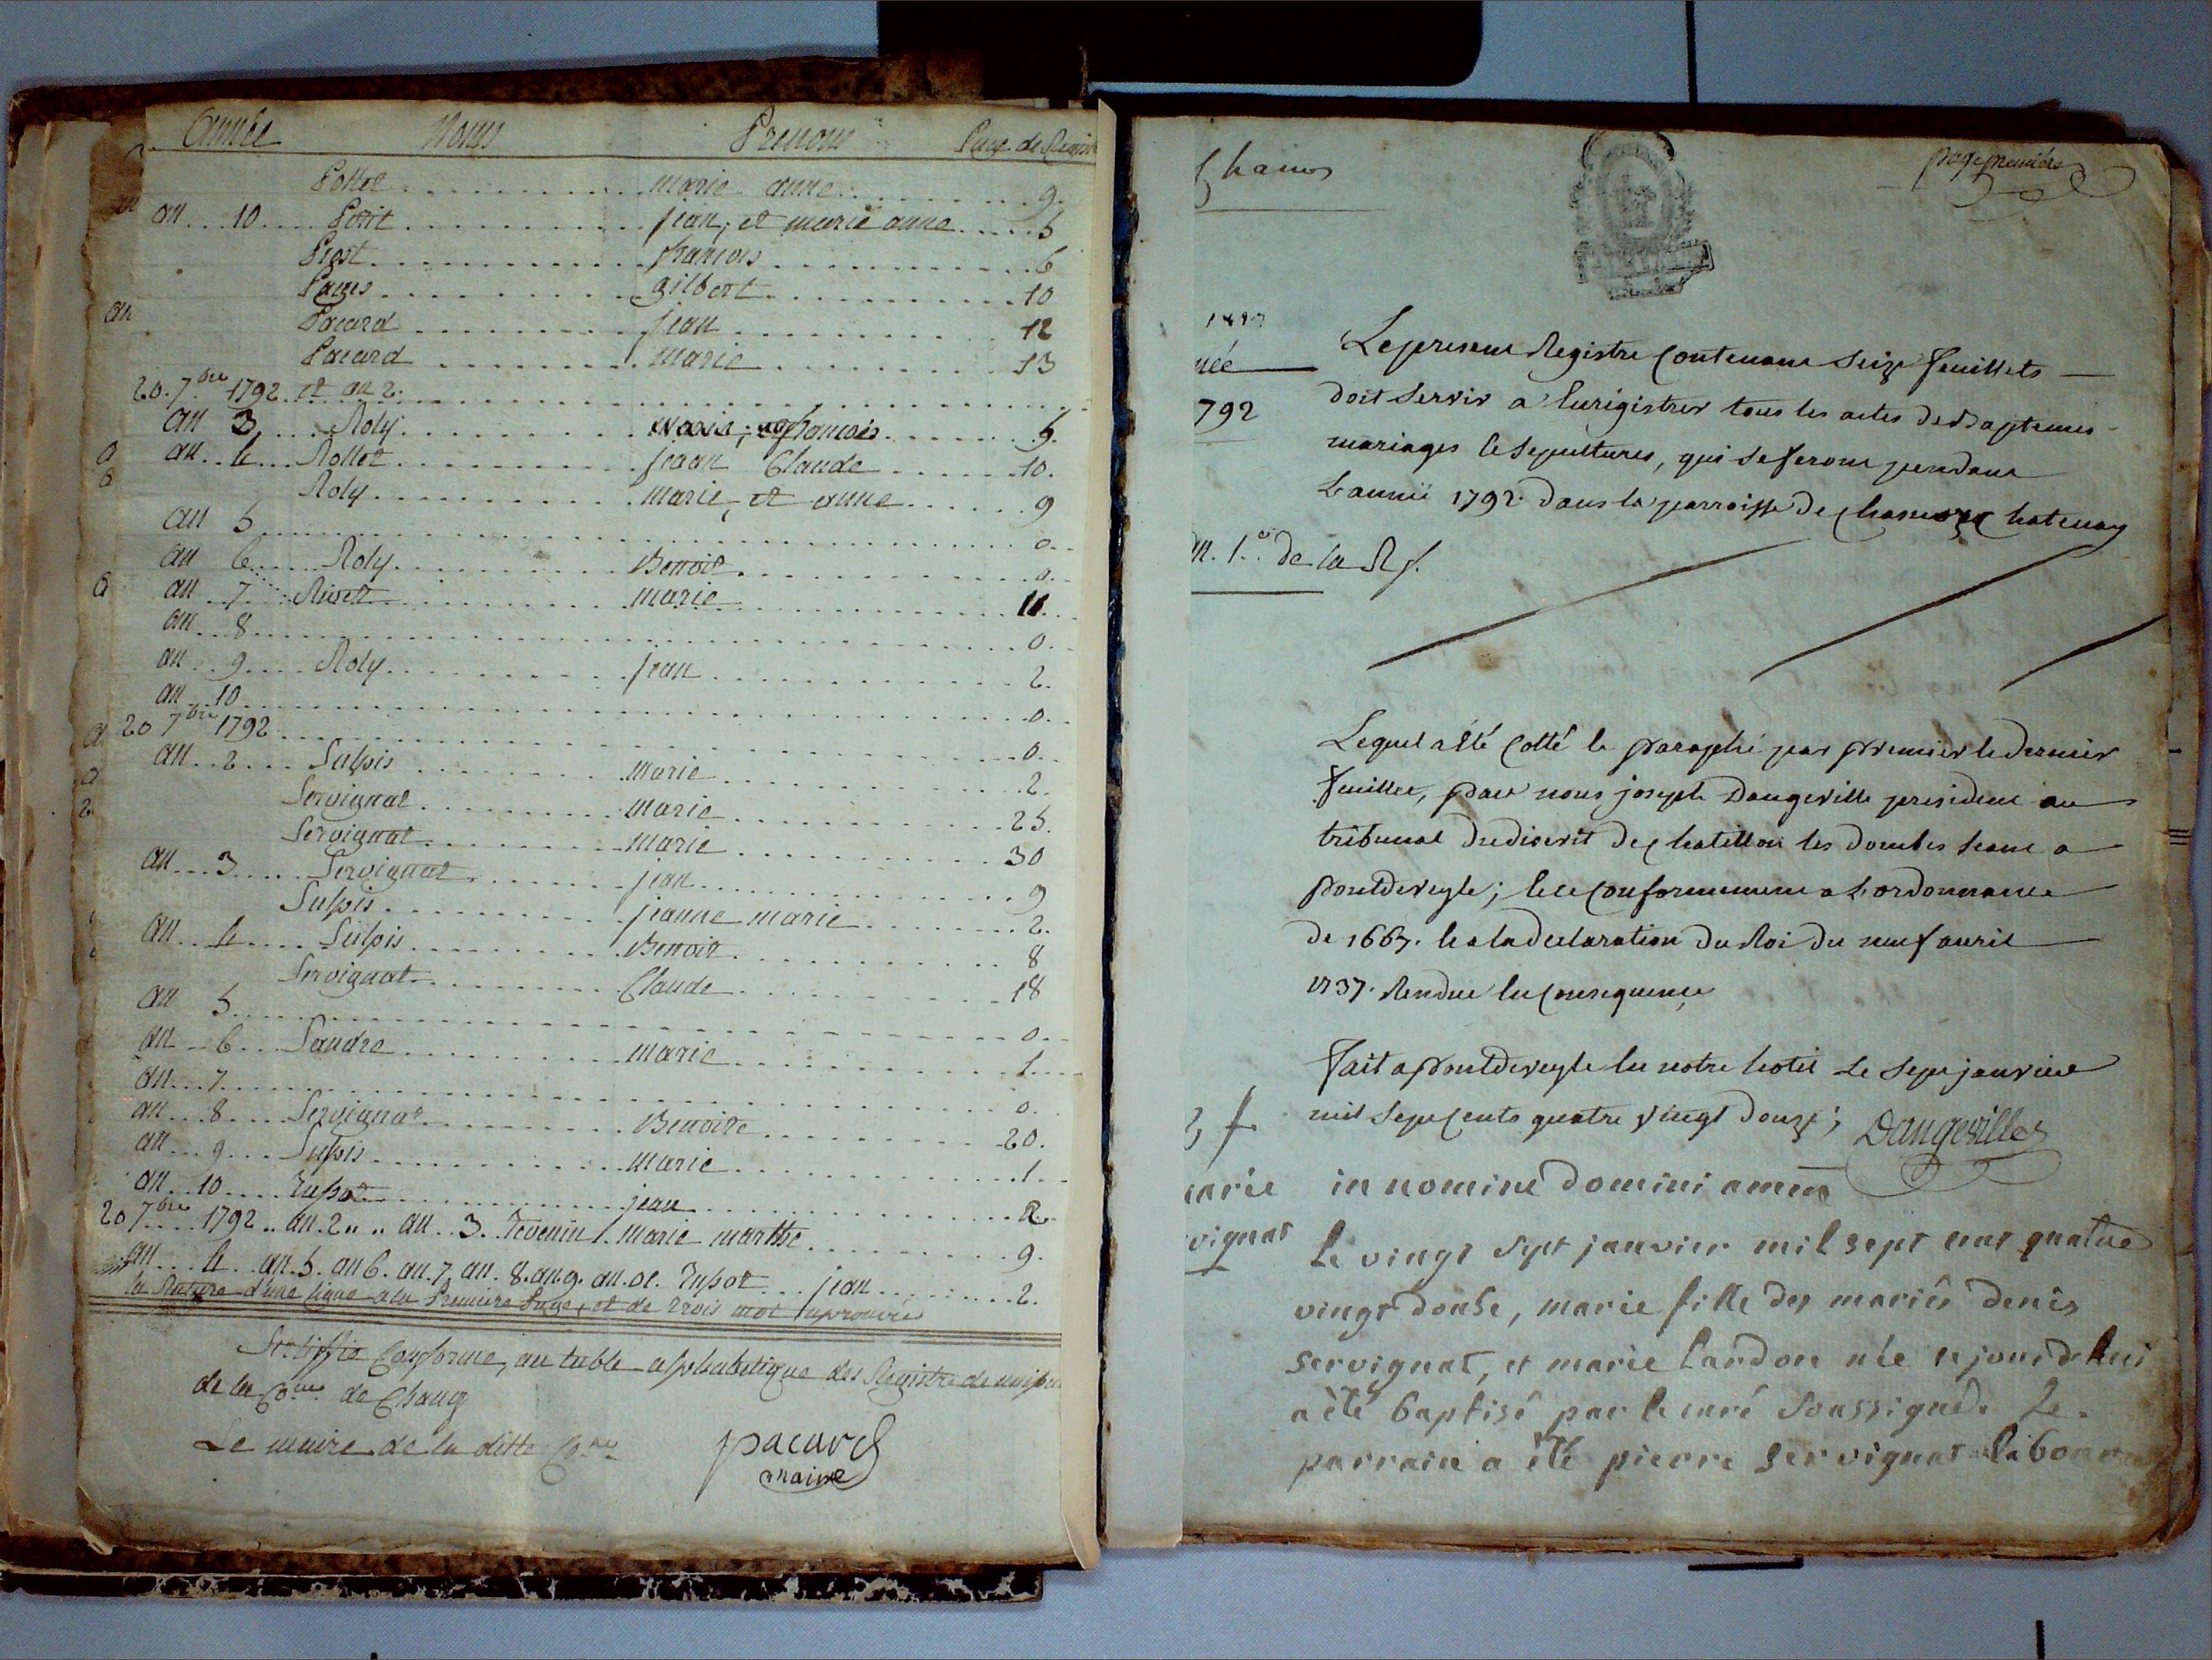 Année Noms Prenoms Page de Registre
Pollet marie anne 9.
an 10 Petit jean, et marie anne 5
Prost francois 6
Pages gilbert 10
Pacard jean 12
Pacard marie 13
20. 7bre 1792 et an 2.
an 3 Roly francois 5.
an 4 Rollet jean Claude 10.
Roly marie, et anne 9
an 5 0
an 6 Roly Benoit 0
an 7 Rivet marie 11
an 8 0
an 9 Roly jean 2.
an 10 0
20 7bre 1792 0
an 2 Sulpis marie 2.
Servignat marie 25.
Servignat marie 30
an 3 Servignat jean 9
Sulpis jeanne marie 2.
an 4 Sulpis Benoit 8
Servignat Claude 18
an 5 0
an 6 Sandre marie 1
an 7 0
an 8 Servignat Benoite 20.
an 9 Sulpis marie 1
an 10 jean 2
20 7bre 1792 an 2 an 3. Tevenin marie marthe 9.
an 4 an 5. an 6. an 7 an 8. an 9. an jean 2.
la Rature d'une ligne a la Premiere Page, et de trois mot aprouvée
Certiffié Conforme, au table alphabetique des Registre de
de la Cone de Chanoz
Le maire de la ditte Cone pacard
maire
Chanoz
page premiere
née
792
Le present Registre contenant seize feuillets
doit servir a Enrigistrer tous les actes de Baptemes
mariages & sepultures, qui se feront pendant
L'année 1792. dans la parroisse de chanoz chatenay
de la R f.
Lequel a Eté cotté & paraphé par premier & dernier
feuillet, par nous joseph Dangeville president au
tribunal du district de chatillon les dombes seant a
pontdeveyle; & ce conformement a L'ordonnance
de 1667. & a la declaration du Roi du neuf avril
1737. Rendue En consequence
Fait a pontdeveyle En notre hotel Le sept janvier
mil sept cents quatre vingt douze; Dangeville
in nomine domini amen
marie
vignat
Le vingt sept janvier mil sept cent quatre
vingt douse, marie fille des mariés denis
servignat, et marie Cardon née ce jourdehui
a èté baptisé par le curé soussigné. Le
parrain a èté pierre servignat